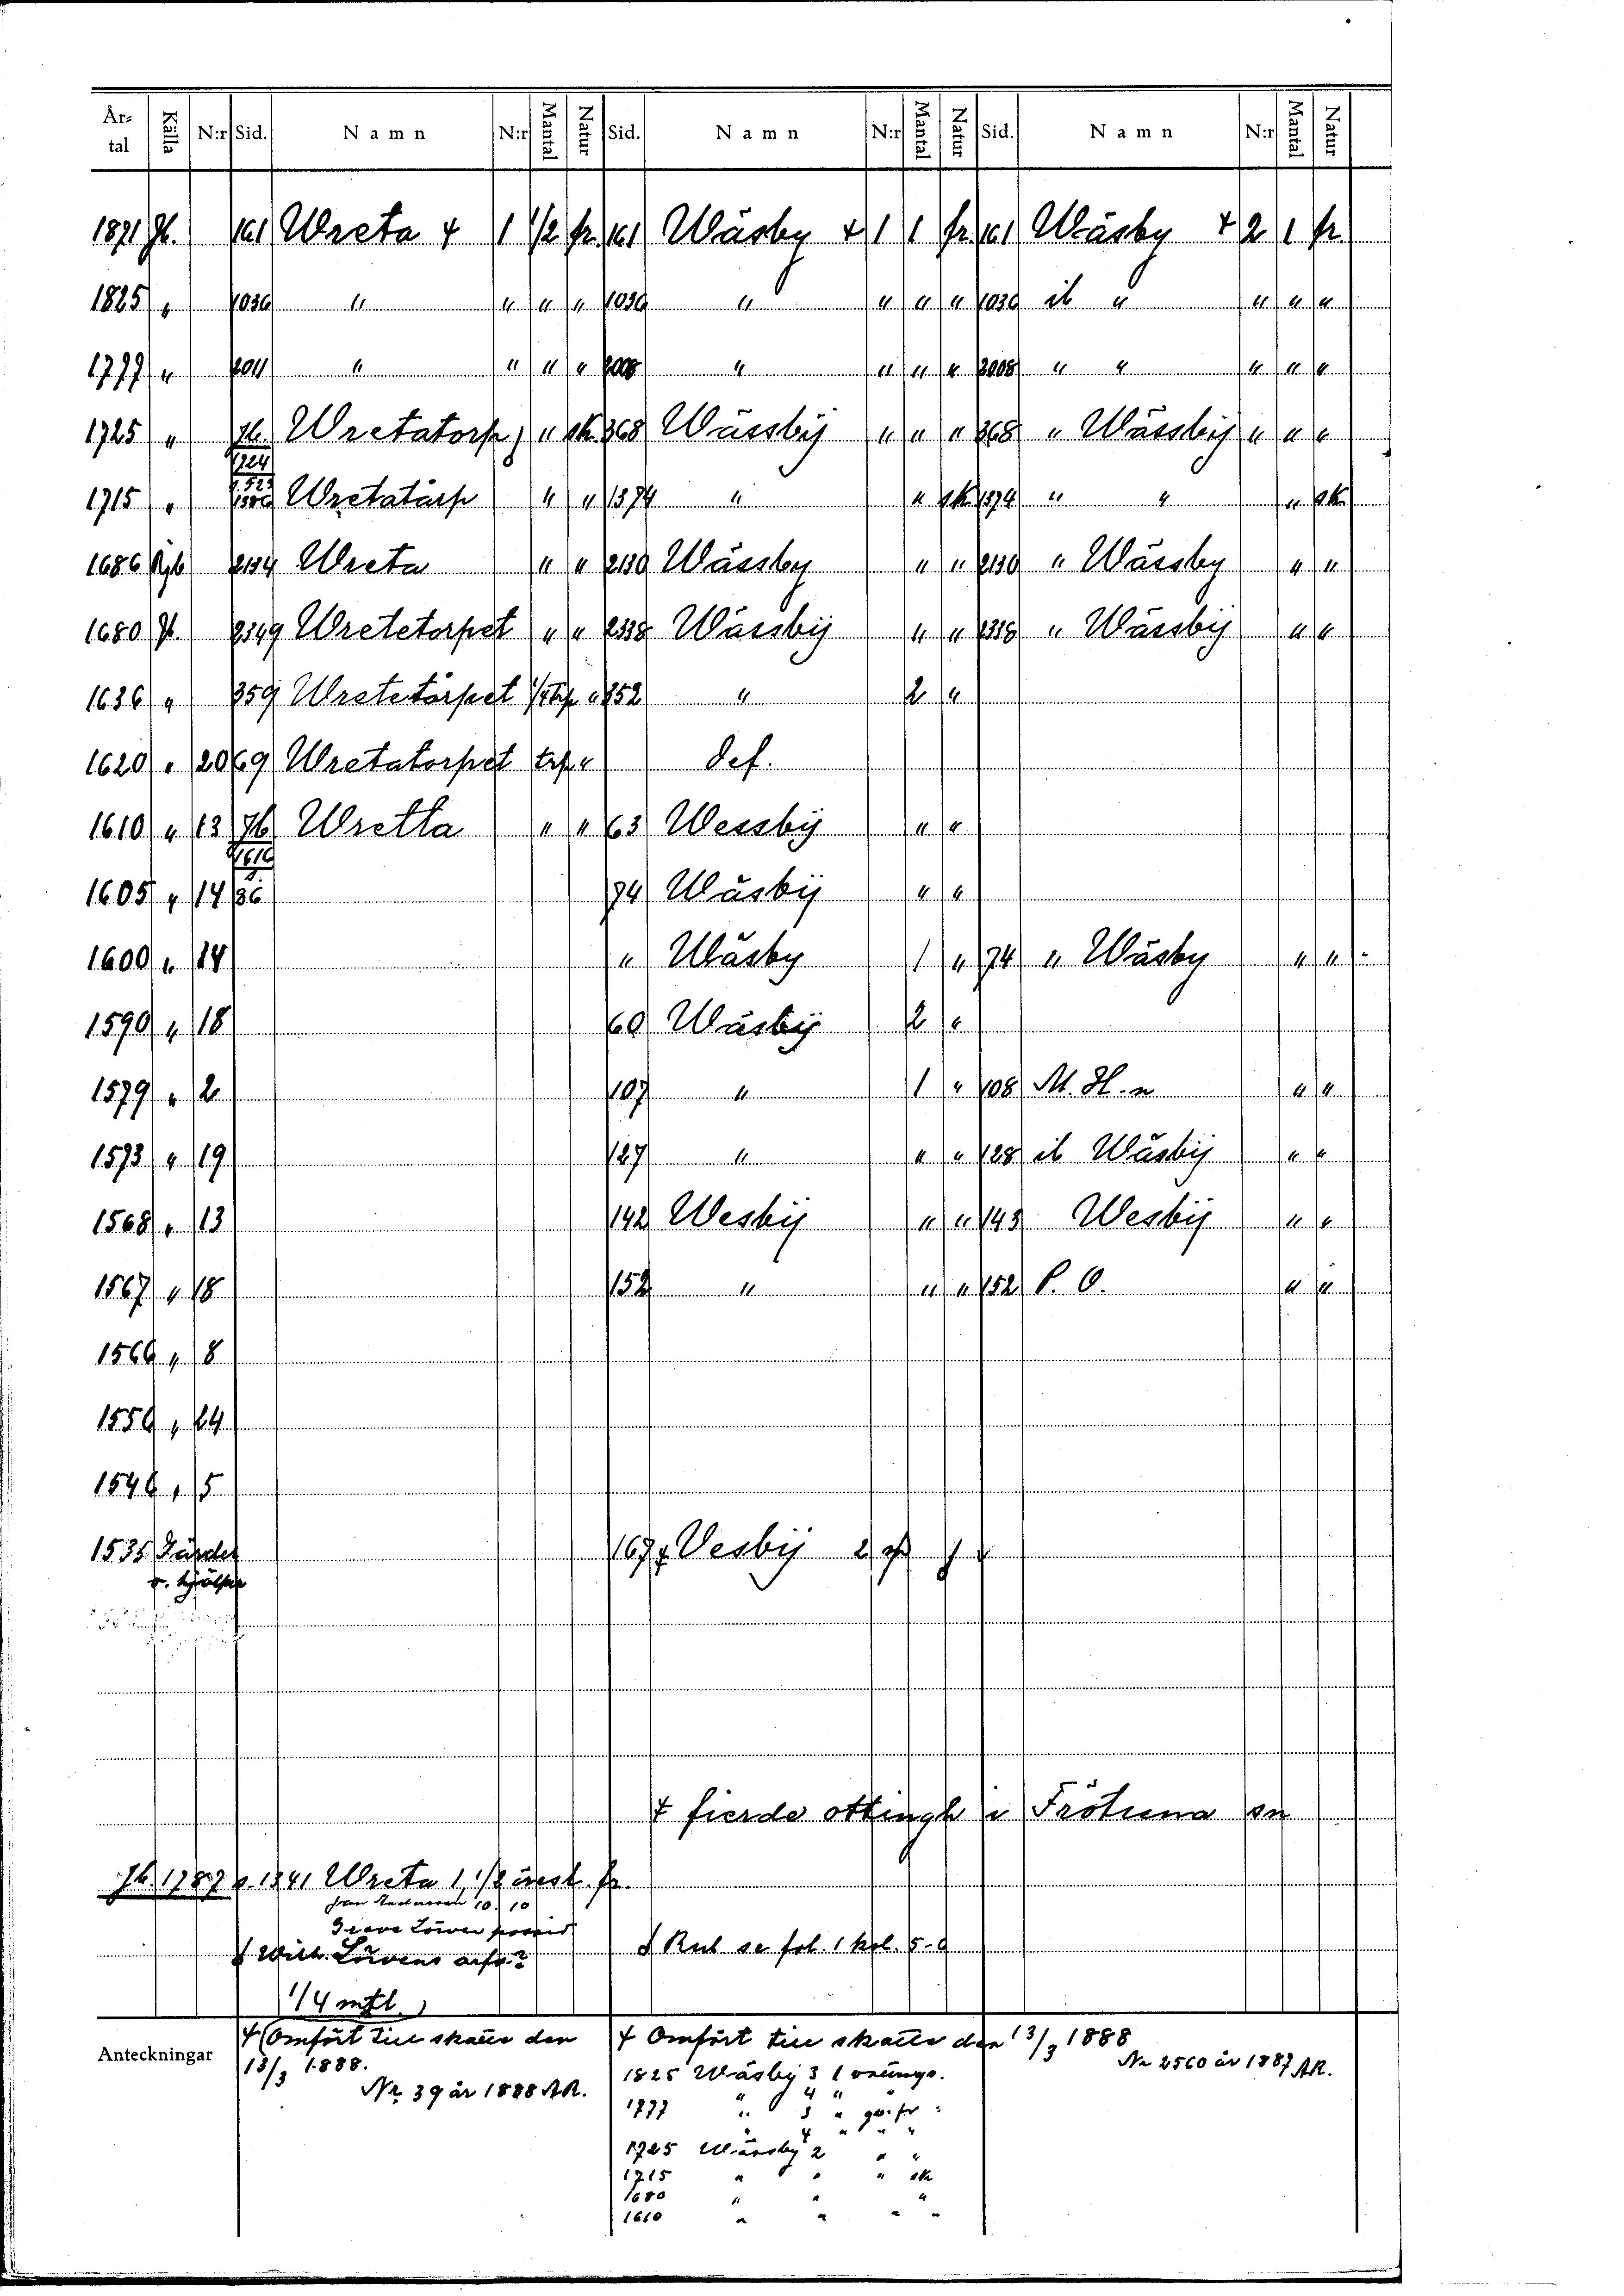 År-tal Källa N:r Sid. Namn N:r Mantal Natur Sid. Namn N:r Mantal Natur Sid. Namn N:r Mantal Natur
1871 Jb. 161 Wreta + 1 1/2 fr. 161 Wäsby + 1 1 fr. 161 Wäsby + 2 1 fr.
1825 " 1036 " " " " 1036 " " " " 1036 ib " " " "
1777 " 2011 " " " " 2008 " " " " 2008 " " " " "
1725 " Jb. Wretatorp " sk. 368 Wässbÿ " " " 368 " Wässbÿ " " "
1724
s. 523
1715 " 1386 Wretatårp " " 1374 " " sk 1374 " " " sk
1686 Rjb 2134 Wreta " " 2130 Wässby " " 2130 " Wässby " "
1680 Jb. 2349 Wretetorpet " " 2338 Wässbÿ " " 2338 " Wässbÿ " "
1636 " 359 Wretetörpet 1/4 trp " 352 " 2 "
1620 " 20 69 Wretatorpet trp " def.
1610 " 13 Jb Wretta " " 63 Wessbÿ " "
1616
1605 " 14 86 74 Wäsbÿ " "
1600 " 14 " Wäsby 1 " 74 " Wäsby " "
1590 " 18 60 Wäsbÿ 2 "
1579 " 2 107 " 1 " 108 M. H-n " "
1573 " 19 127 " " " 128 ib Wäsbÿ " "
1568 " 13 142 Wesbÿ " " 143 Wesbÿ " "
1567 " 18 152 " " " 152 P. O. " "
1560 " 8
1550 " 24
1546 " 5
1535 Gärder 167 + Vesbÿ 2
o. hjälper
+ fierde ottingh i Frötuna sn
Jb. 1787 s. 1341 Wreta 1, 1/2 fr.
Jan Andersson 10. 10
Greve Löwen
Wilh. Lövens arfv.? Rub se fol. 1 kol. 5-6
1/4 mtl.
Anteckningar
+ Omfört till skatte den
13/3 1888.
Nr 39 år 1888 AR.
+ Omfört till skatte den 13/3 1888
Nr 2560 år 1887 AR.
1825 Wäsby 3 1
" 4 "
1777 " 3 " fr
" 4 " " "
1725 Wässby 2 " "
1715 " " " sk
1680 " " "
1610 " " " "